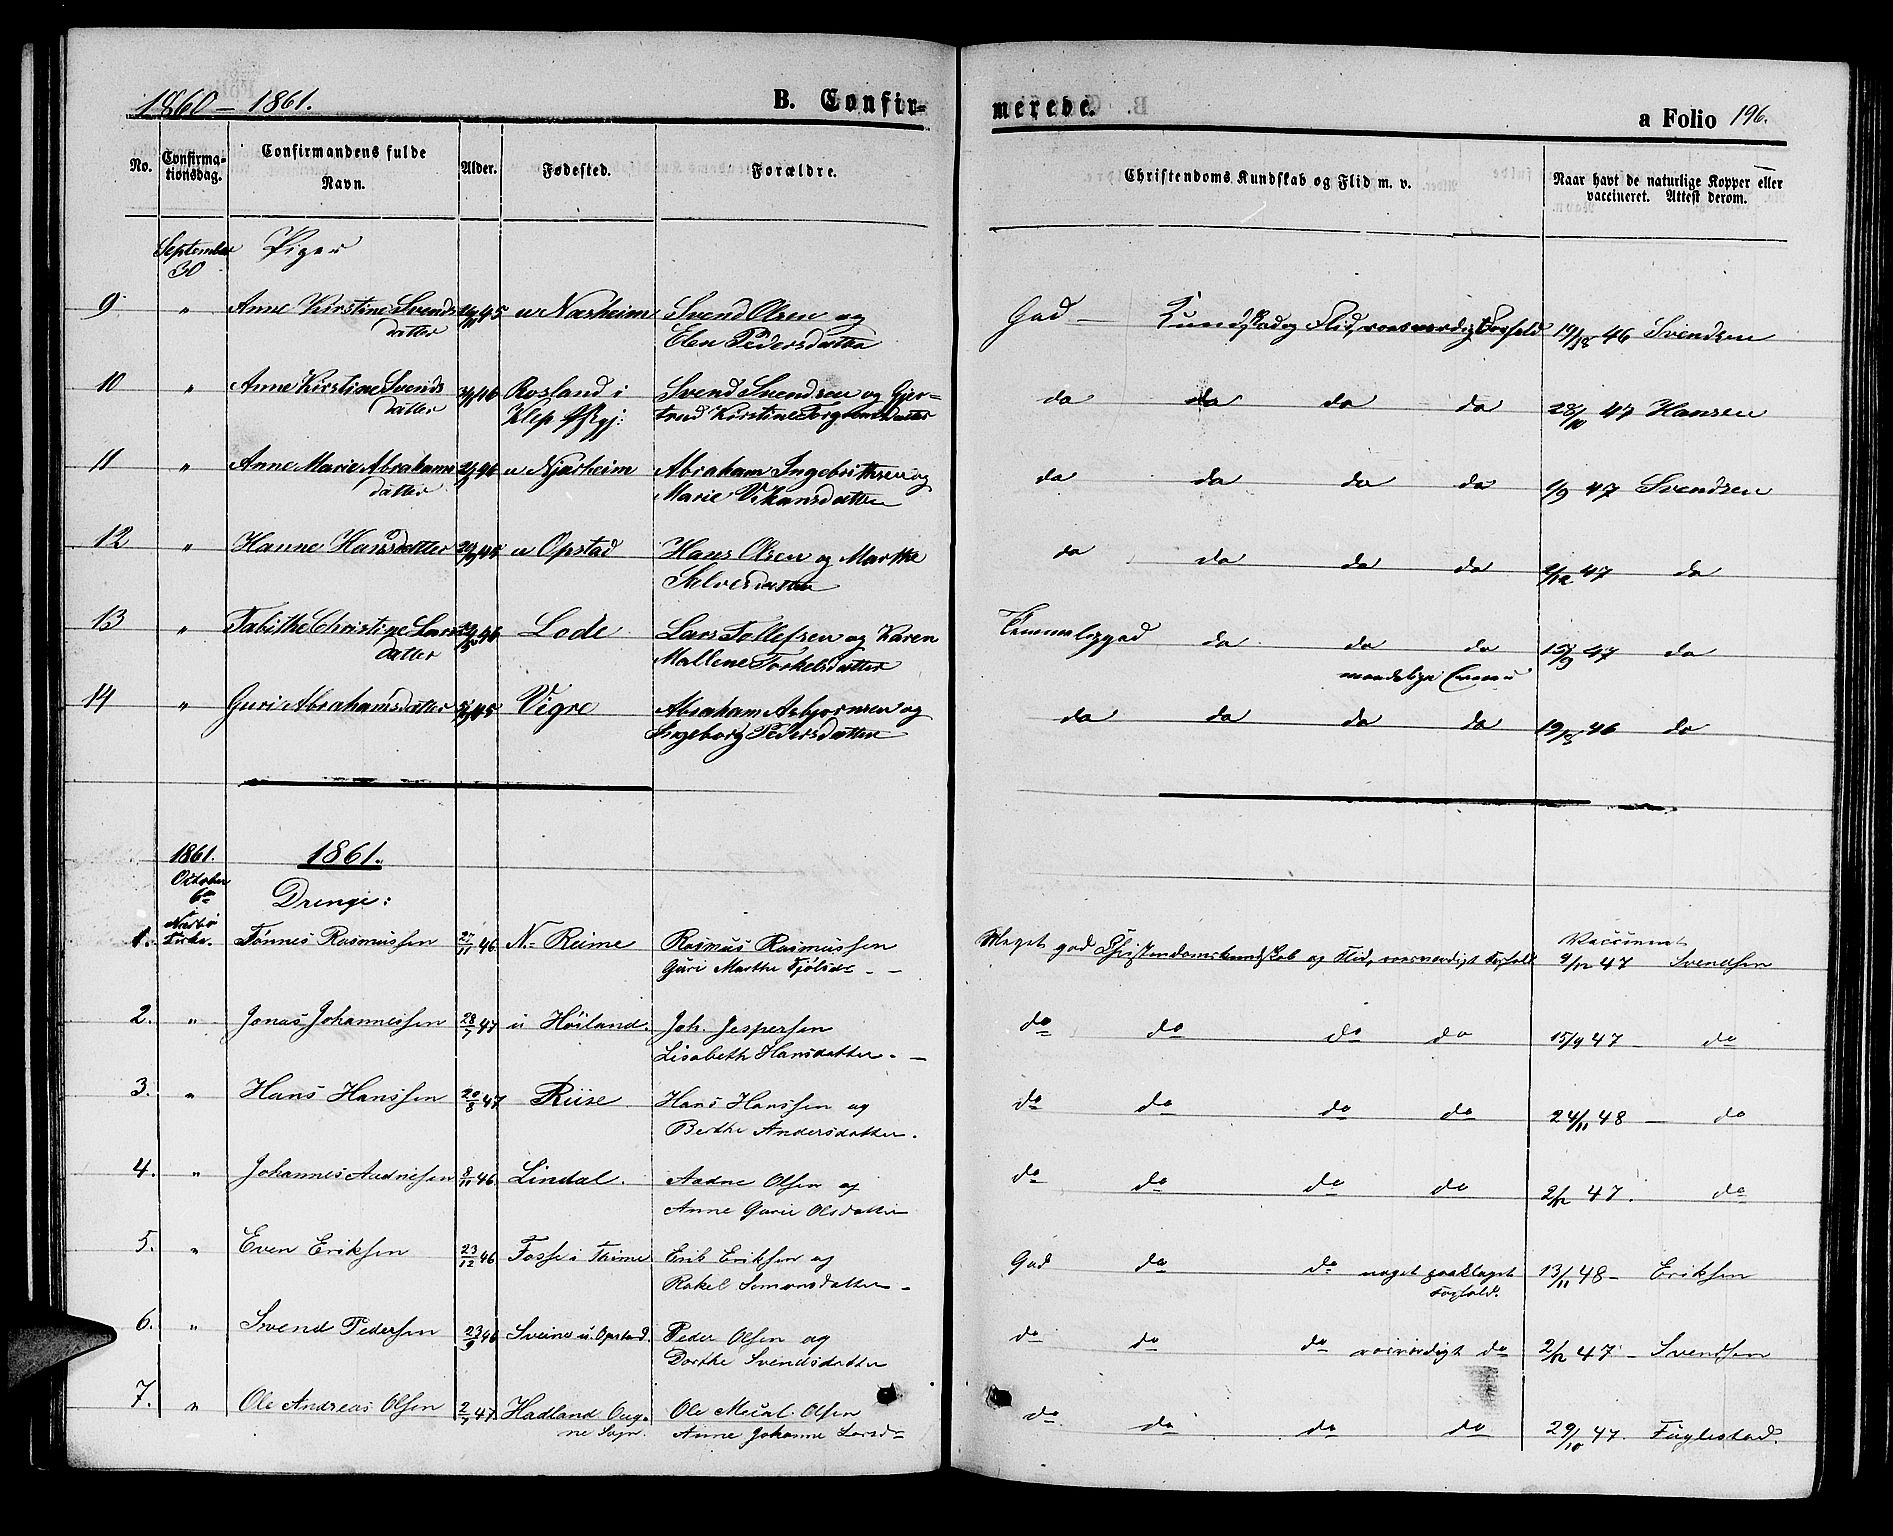 1860 – 1861.
B. Confir=
merede.
a Folio 196.
No.
Confirma=
tionsdag.
Confirmandens fulde
Navn.
Alder.
Fødested.
Forældre.
Christendoms Kundskab og Flid m. v.
Naar havt de naturlige Kopper eller
vaccineret. Attest derom.
September
30
Piger
9 " Anne Kirstine Svends 45 u Nærheim Svend Olsen og God – Kundskab og Flid, roesværdigt Forhold 19/12 46 Svendsen
datter Elen Pedersdatter
10 " Anne Kirstine Svends 46 Rosland i Svend Svendsen og Gjer= do do do do 28/10 47 Hansen
datter Klep Prgj: trud Kirstine datter
11 " Anne Marie Abrahams 46 u Njærheim Abraham Ingebrithsen og do do do do 1/9 47 Svendsen
datter Marie
12 " Hanne Hansdatter 45 u Opstad Hans Olsen og Marthe do do do do 2/12 47 do
datter
13 " Tabithe Christine Lars 46 Lode Lars Tollefsen og Karen Temmelig god do do do 15/9 47 do
datter Mallene Torkelsdatter
14 " Guri Abrahamsdatter 45 Vigre Abraham Asbjørnsen og do do do do 19/12 46 do
Ingeborg Pedersdatter
1861.
October
6te
1861.
Drenge:
Nærbø
Kirke.
1. Tønnes Rasmussen 27/11 46 N. Reime Rasmus Rasmussen Meget god Christendomskundskab og Flid, roesværdigt Forhold Vaccineret
Guri Marthe – – 9/12 47 Svendsen
2. " Jonas Johannessen 28/7 47 u Høiland. Joh. Jespersen do do do do 15/9 47 – do
Lisabeth Hansdatter. –
3. " Hans Hanssen 20/8 47 Riise Hans Hanssen og do do do do 24/11 48 – do
Berthe Andersdatter.
4. " Johannes Aadnesen 8/11 46. Lindal. Aadne Olsen og do do do do 2/12 47. do
Anne Gurie Olsdatter
5. " Even Eriksen 23/12 46 Fosse i Thime Erik Eriksen og God do do noget paaklaget 13/11 48 – Eriksen
Rakel Simonsdatter – Forhold.
6. " Svend Pedersen 23/9 46 Sveine u. Opstad. Peder Olsen og do do do roesværdigt do 2/12 47 – Svendsen
Dorthe Svendsdatter
7. " Ole Andreas Olsen 2/7 47 Hadland Oug= Ole Olsen do do do do 29/10 47. Fuglestad.
ne Sogn. Anne Johanne Larsd=